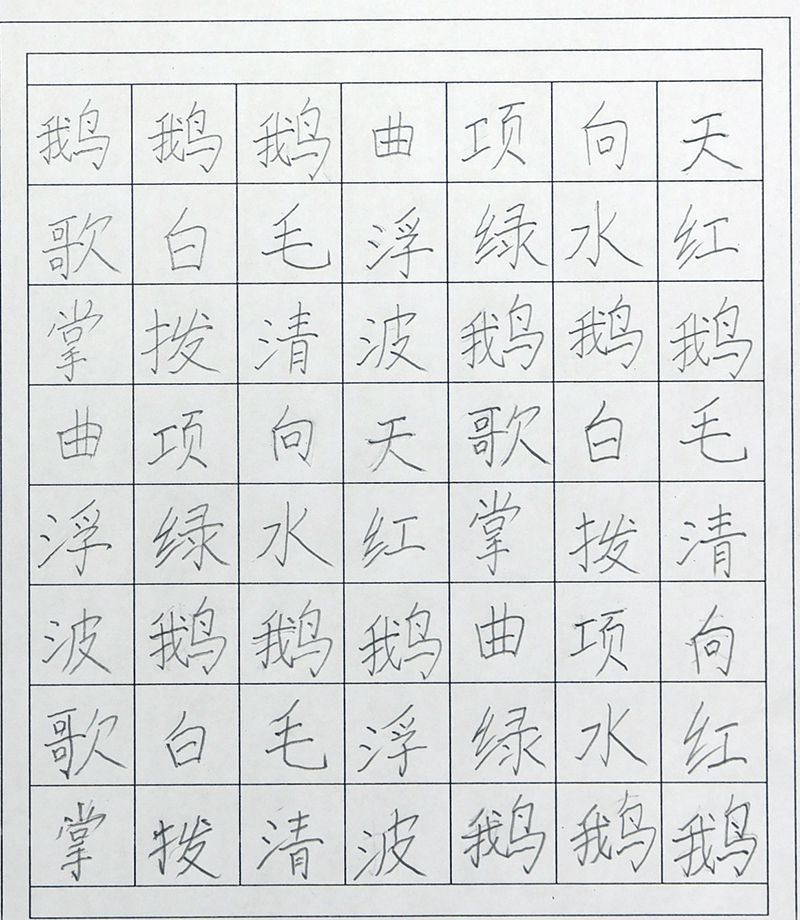 鹅鹅鹅曲项向天
歌白毛浮绿水红
掌拨清波鹅鹅鹅
曲项向天歌白毛
浮绿水红掌拨清
波鹅鹅鹅曲项向
歌白毛浮绿水红
掌拨清波鹅鹅鹅